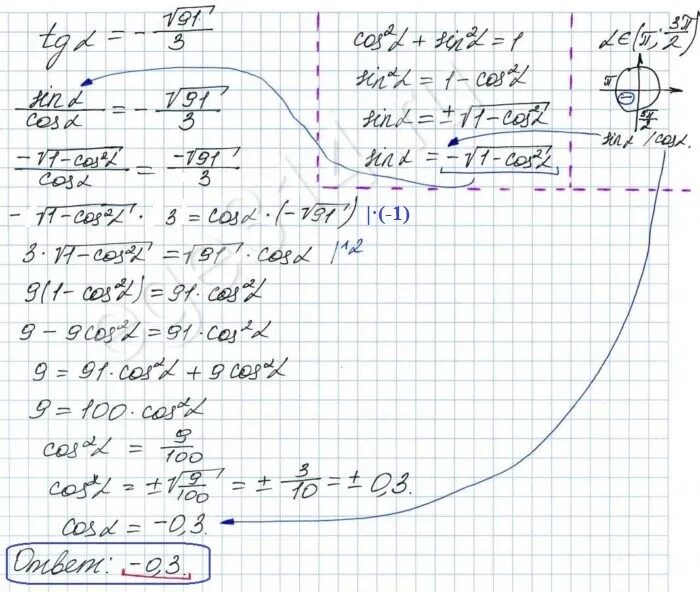 tg α = - √91 / 3
sin α / cos α = - √91 / 3
-√1-cos²α / cos α = -√91 / 3
- √1-cos²α · 3 = cos α · (-√91) |·(-1)
3 · √1-cos²α = √91 · cos α |^2
9(1-cos²α) = 91·cos²α
9 - 9cos²α = 91·cos²α
9 = 91·cos²α + 9cos²α
9 = 100·cos²α
cos²α = 9/100
cos²α = ±√9/100 = ± 3/10 = ± 0,3.
cos α = -0,3.
Ответ: -0,3.
cos²α + sin²α = 1
sin²α = 1 - cos²α
sin α = ±√1-cos²α
sin α = -√1-cos²α
α ∈ (π; 3π/2)
π
3π/2
sin α / cos α.